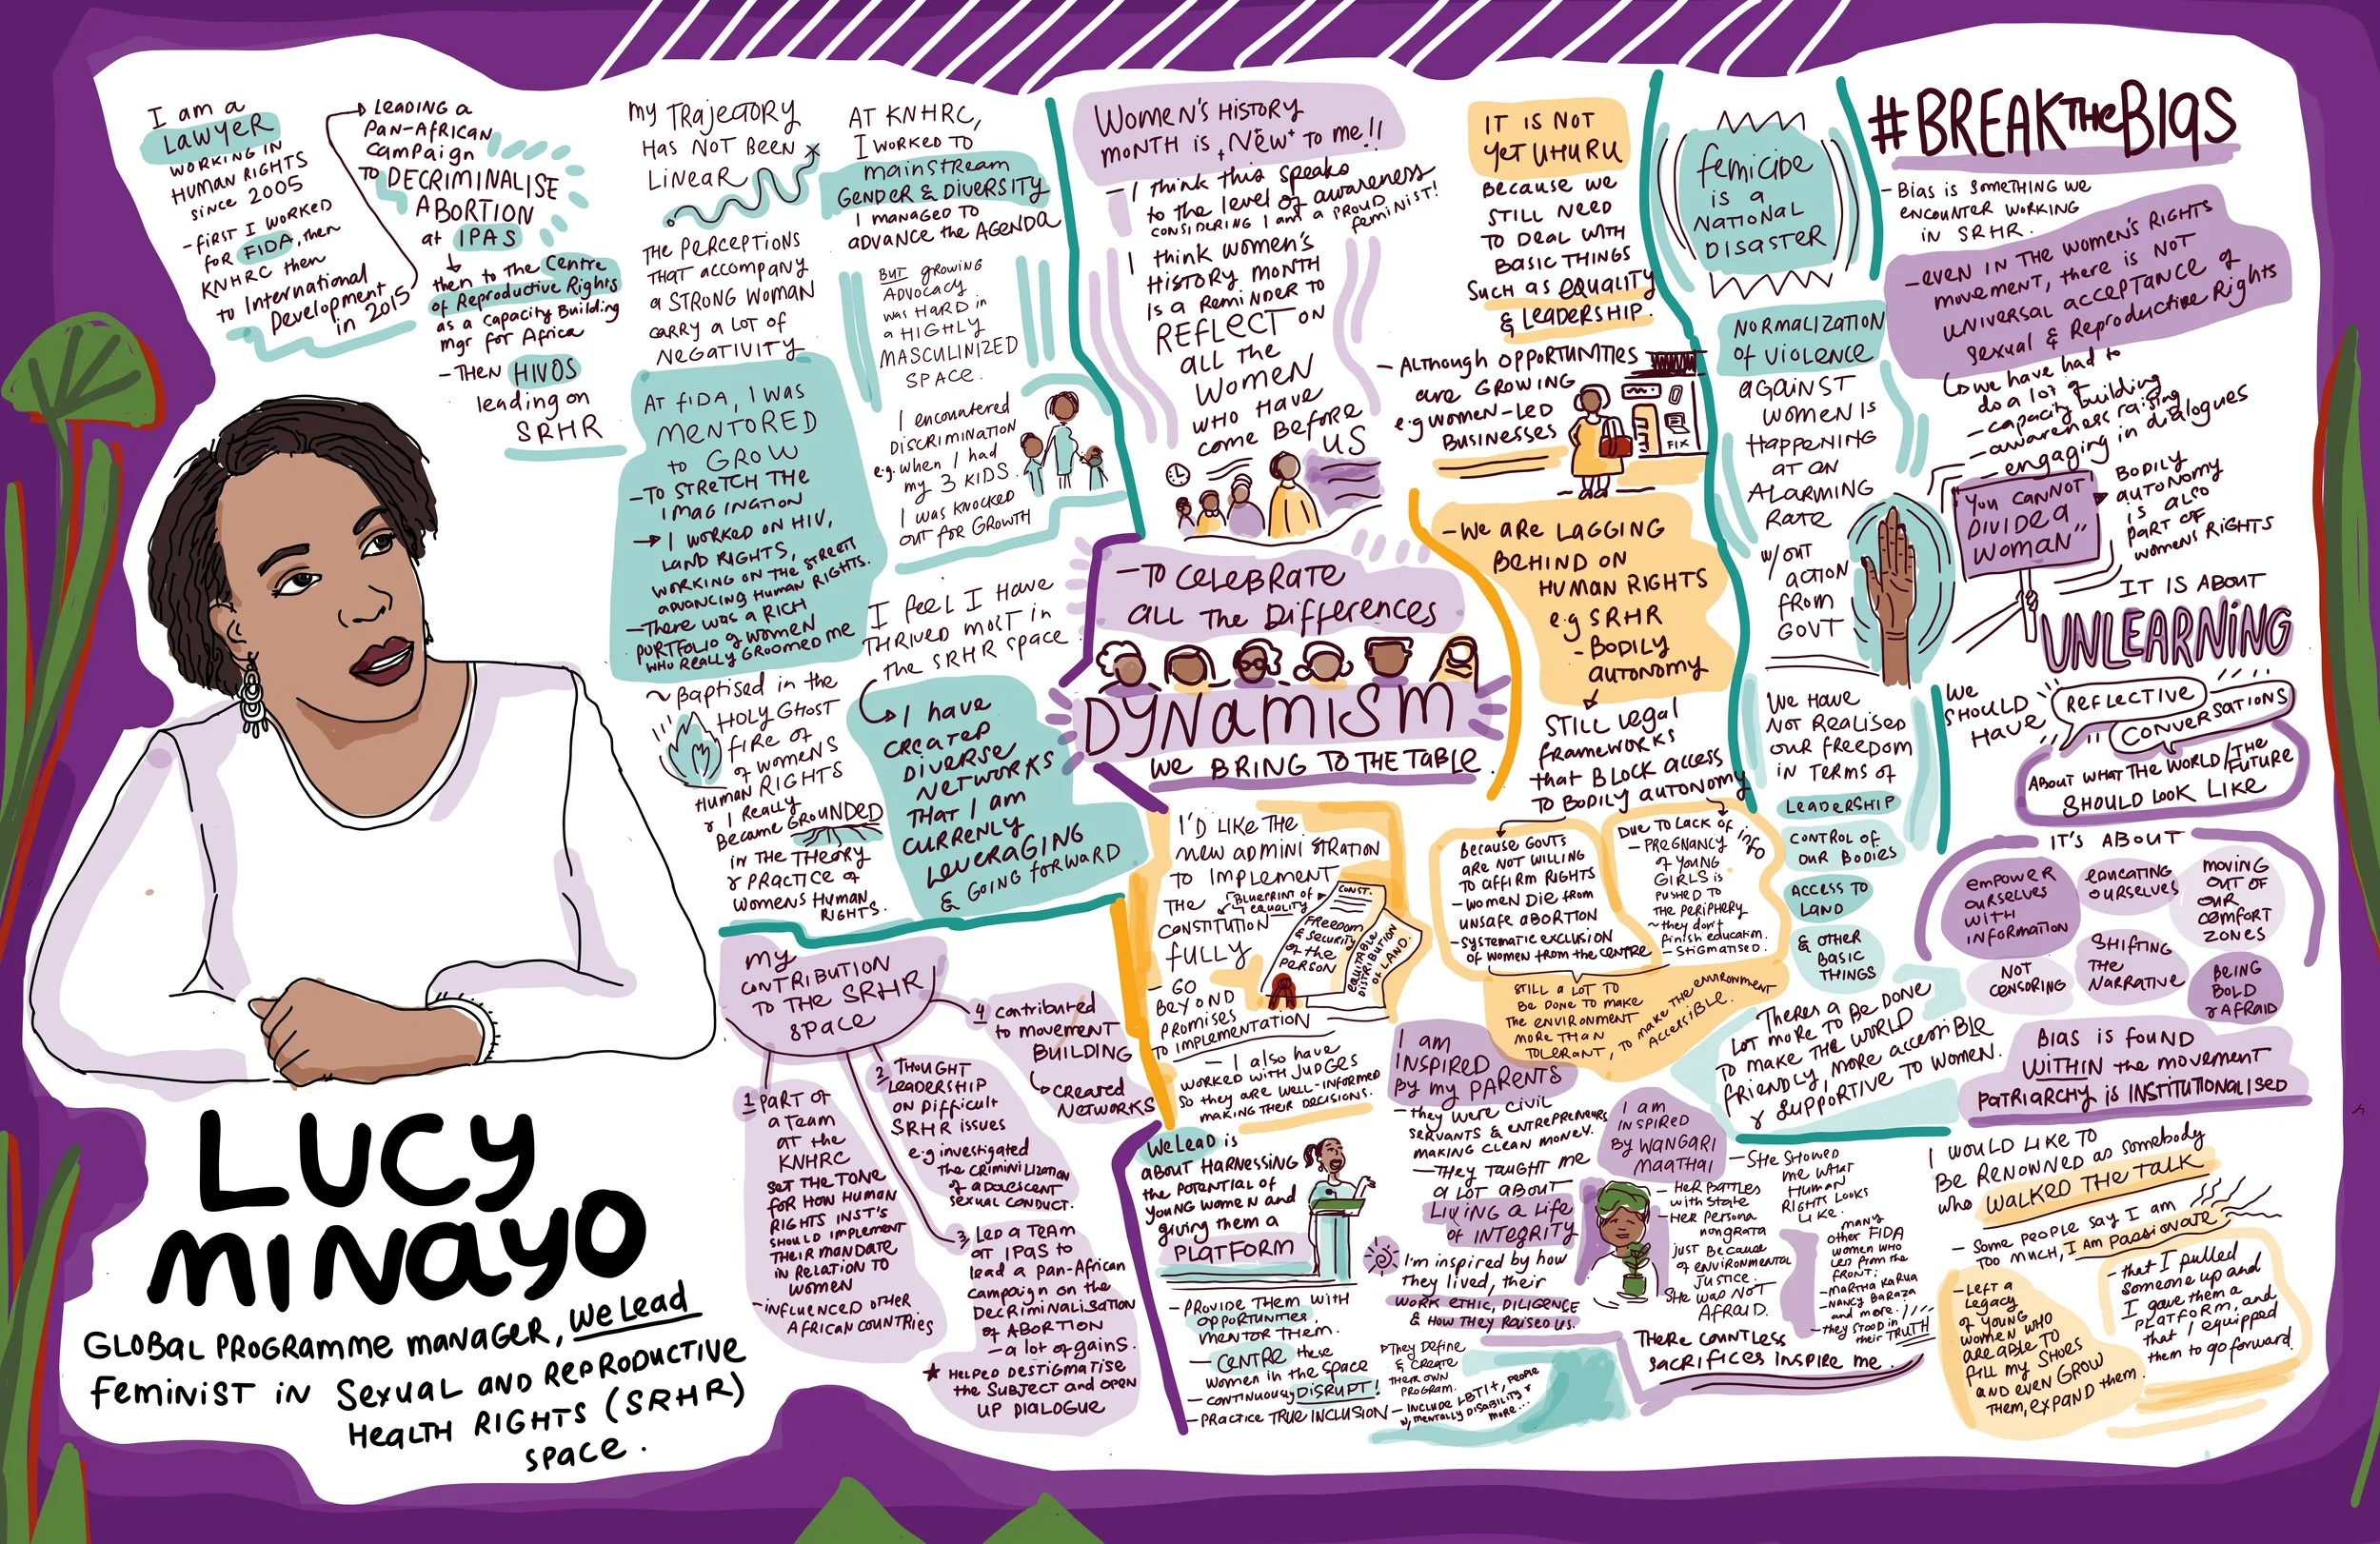 I am a
LAWYER
WORKING IN
HUMAN RIGHTS
SINCE 2005
- FIRST I WORKED
FOR FIDA, then
KNHRC then
to International
Development
in 2015
LEADING a
PAN-AFRICAN
campaign
TO DECRIMINALISE
ABORTION
at IPAS
then to the Centre
of Reproductive Rights
as a capacity Building
mgr for Africa
- THEN HIVOS
leading on
SRHR
LUCY
MINAYO
GLOBAL PROGRAMME MANAGER, We Lead
FEMINIST IN SEXUAL AND REPRODUCTIVE
HEALTH RIGHTS (SRHR)
SPACE.
MY TRAJECTORY
HAS NOT BEEN
LINEAR
THE PERCEPTIONS
THAT accompany
a STRONG WOMAN
CARRY A LOT OF
NEGATIVITY
AT FIDA, I WAS
MENTORED
to GROW
- TO STRETCH THE
IMAGINATION
I WORKED ON HIV,
LAND RIGHTS,
WORKING ON THE STREET
ADVANCING HUMAN RIGHTS.
- THERE WAS A RICH
PORTFOLIO of WOMEN
WHO REALLY GROOMED ME
~ Baptised in the
HOLY GHOST
FIRE OF
of WOMENS
HUMAN RIGHTS
& I Really
Became GROUNDED
IN THE THEORY
& PRACTICE of
WOMENS HUMAN
RIGHTS.
AT KNHRC,
I WORKED TO
mainstream
GENDER & DIVERSITY
I MANAGED TO
ADVANCE the AGENDA
BUT growing
ADVOCACY
was HARD in
a HIGHLY
MASCULINIZED
SPACE.
I encountered
DISCRIMINATION
e.g. when I had
my 3 KIDS.
I was KNOCKED
OUT FOR GROWTH
I feel I Have
THRIVED MOST in
the SRHR space
I have
CREATED
DIVERSE
NETWORKS
THAT I am
CURRENLY
LEVERAGING
& GOING FORWARD
MY
CONTRIBUTION
TO THE SRHR
SPACE
1 PART OF
a Team
AT the
KNHRC
SET THE TONE
FOR HOW HUMAN
RIGHTS INST'S
SHOULD IMPLEMENT
THEIR MANDATE
IN RELATION TO
WOMEN
- INFLUENCED OTHER
AFRICAN COUNTRIES
2 THOUGHT
LEADERSHIP
ON Difficult
SRHR issues
e.g investigated
the CRIMINILIZATION
of ADOLESCENT
SEXUAL CONDUCT.
3 LED a TEAM
AT IPAS to
lead a Pan-African
campaign on the
DECRIMINALISATION
of ABORTION
- a lot of gains.
HELPED DESTIGMATISE
the SUBJECT and OPEN
UP DIALOGUE
4 contributed
to movement
BUILDING
CREATED
NETWORKS
WOMEN'S HISTORY
MONTH IS "NEW" TO ME!!
- I think this speaks
to the level of awareness
CONSIDERING I AM a PROUD
feminist!
I think women's
HISTORY MONTH
IS a REMINDER TO
REFLECT ON
all the
WOMEN
WHO HAVE
come BEFORE
US
- TO CELEBRATE
all The Differences
DYNAMISM
WE BRING TO THE TABLE.
I'D LIKE THE
new ADMINISTRATION
TO IMPLEMENT
THE
CONSTITUTION
FULLY
BLUEPRINT OF
EQUALITY
CONST.
FREEDOM
& SECURITY
of the
PERSON
EQUITABLE
DISTRIBUTION
of LAND.
- GO
BEYOND
PROMISES
TO IMPLEMENTATION
- I also have
WORKED WITH JUDGES
SO they are WELL-INFORMED
MAKING THEIR DECISIONS.
WE LEAD is
ABOUT HARNESSING
the POTENTIAL of
YOUNG WOMEN and
giving them a
PLATFORM
- PROVIDE THEM WITH
OPPORTUNITIES,
MENTOR THEM.
- CENTRE these
WOMEN in the SPACE
- continuously DISRUPT!
- PRACTICE TRUE INCLUSION
They Define
& CREATE
THEIR OWN
PROGRAM.
- INCLUDE LBTI+, PEOPLE
w/ MENTALLY DISABILITY &
MORE...
IT IS NOT
YET UHURU
BECAUSE WE
STILL NEED
TO DEAL WITH
BASIC THINGS
SUCH as EQUALITY
& LEADERSHIP.
- ALTHOUGH OPPORTUNITIES
are GROWING
e.g WOMEN-LED
BUSINESSES
FIX
- WE ARE LAGGING
BEHIND ON
HUMAN RIGHTS
e.g SRHR
- BODILY
AUTONOMY
STILL legal
frameworks
that BLOCK access
TO BODILY AUTONOMY
Because GOVTS
ARE NOT WILLING
TO AFFIRM RIGHTS
- WOMEN DIE from
UNSAFE ABORTION
- SYSTEMATIC EXCLUSION
OF WOMEN from the CENTRE
DUE TO LACK OF info
- PREGNANCY
of YOUNG
GIRLS is
PUSHED TO
THE PERIPHERY
~ they don't
finish education.
- STIGMATISED.
STILL A LOT TO
BE DONE TO MAKE
THE ENVIRONMENT
MORE THAN
TOLERANT, TO make THE ENVIRONMENT
ACCESSIBLE.
I am
INSPIRED
By my PARENTS
- they were CIVIL
SERVANTS & ENTREPRENEURS
MAKING CLEAN MONEY.
- THEY TAUGHT ME
a lot about
LIVING a LIFE
of INTEGRITY
I'm inspired by how
they lived, their
WORK ETHIC, DILIGENCE
& HOW THEY RAISED US.
I am
INSPIRED
BY WANGARI
MAATHAI
- Her BATTLES
with STATE
- Her Persona
nongrata
just Because
of ENVIRONMENTAL
JUSTICE.
SHE WAS NOT
AFRAID.
- SHE SHOWED
me what
HUMAN
RIGHTS LOOKS
LIKE.
MANY
other FIDA
women who
Led from the
FRONT;
- MARTHA KARUA
- NANCY BARAZA
and more.
- they STOOD in
their TRUTH
THERE COUNTLESS
SACRIFICES INSPIRE me.
femicide
is a
NATIONAL
DISASTER
NORMALIZATION
of VIOLENCE
AGAINST
WOMEN IS
HAPPENING
AT an
ALARMING
Rate
W/OUT
ACTION
FROM
GOVT
WE HAVE
NOT REALISED
OUR FREEDOM
IN TERMS OF
LEADERSHIP
CONTROL OF
OUR BODIES
ACCESS TO
LAND
& OTHER
BASIC
THINGS
THERES a
LOT MORE TO BE DONE
TO MAKE THE WORLD
FRIENDLY, MORE ACCESSIBLE
& SUPPORTIVE TO WOMEN.
#BREAKTHEBIAS
- BIAS IS SOMETHING WE
ENCOUNTER WORKING
IN SRHR.
- EVEN IN THE WOMEN'S RIGHTS
movement, there is NOT
UNIVERSAL ACCEPTANCE of
Sexual & Reproductive Rights
we have had to
do a lot of
- capacity building
- awareness raising
- engaging in dialogues
"YOU CANNOT
DIVIDE a
WOMAN"
BODILY
AUTONOMY
IS also
PART OF
WOMEN'S RIGHTS
IT IS ABOUT
UNLEARNING
WE
SHOULD
HAVE
REFLECTIVE
CONVERSATIONS
ABOUT WHAT THE WORLD/THE
FUTURE
SHOULD LOOK LIKE
IT'S ABOUT
EMPOWER
OURSELVES
WITH
INFORMATION
EDUCATING
OURSELVES
MOVING
OUT OF
OUR
COMFORT
ZONES
NOT
CENSORING
SHIFTING
THE
NARRATIVE
BEING
BOLD
& AFRAID
BIAS IS FOUND
WITHIN the movement
PATRIARCHY is INSTITUTIONALISED
I WOULD LIKE TO
BE RENOWNED as somebody
who WALKED THE TALK
- Some people say I am
TOO MUCH, I am PASSIONATE
- Left a
Legacy
of YOUNG
WOMEN WHO
are able TO
fill my SHOES
and even GROW
THEM, EXPAND them.
- that I pulled
someone up and
I gave them a
PLATFORM, and
that I equipped
them to go forward.